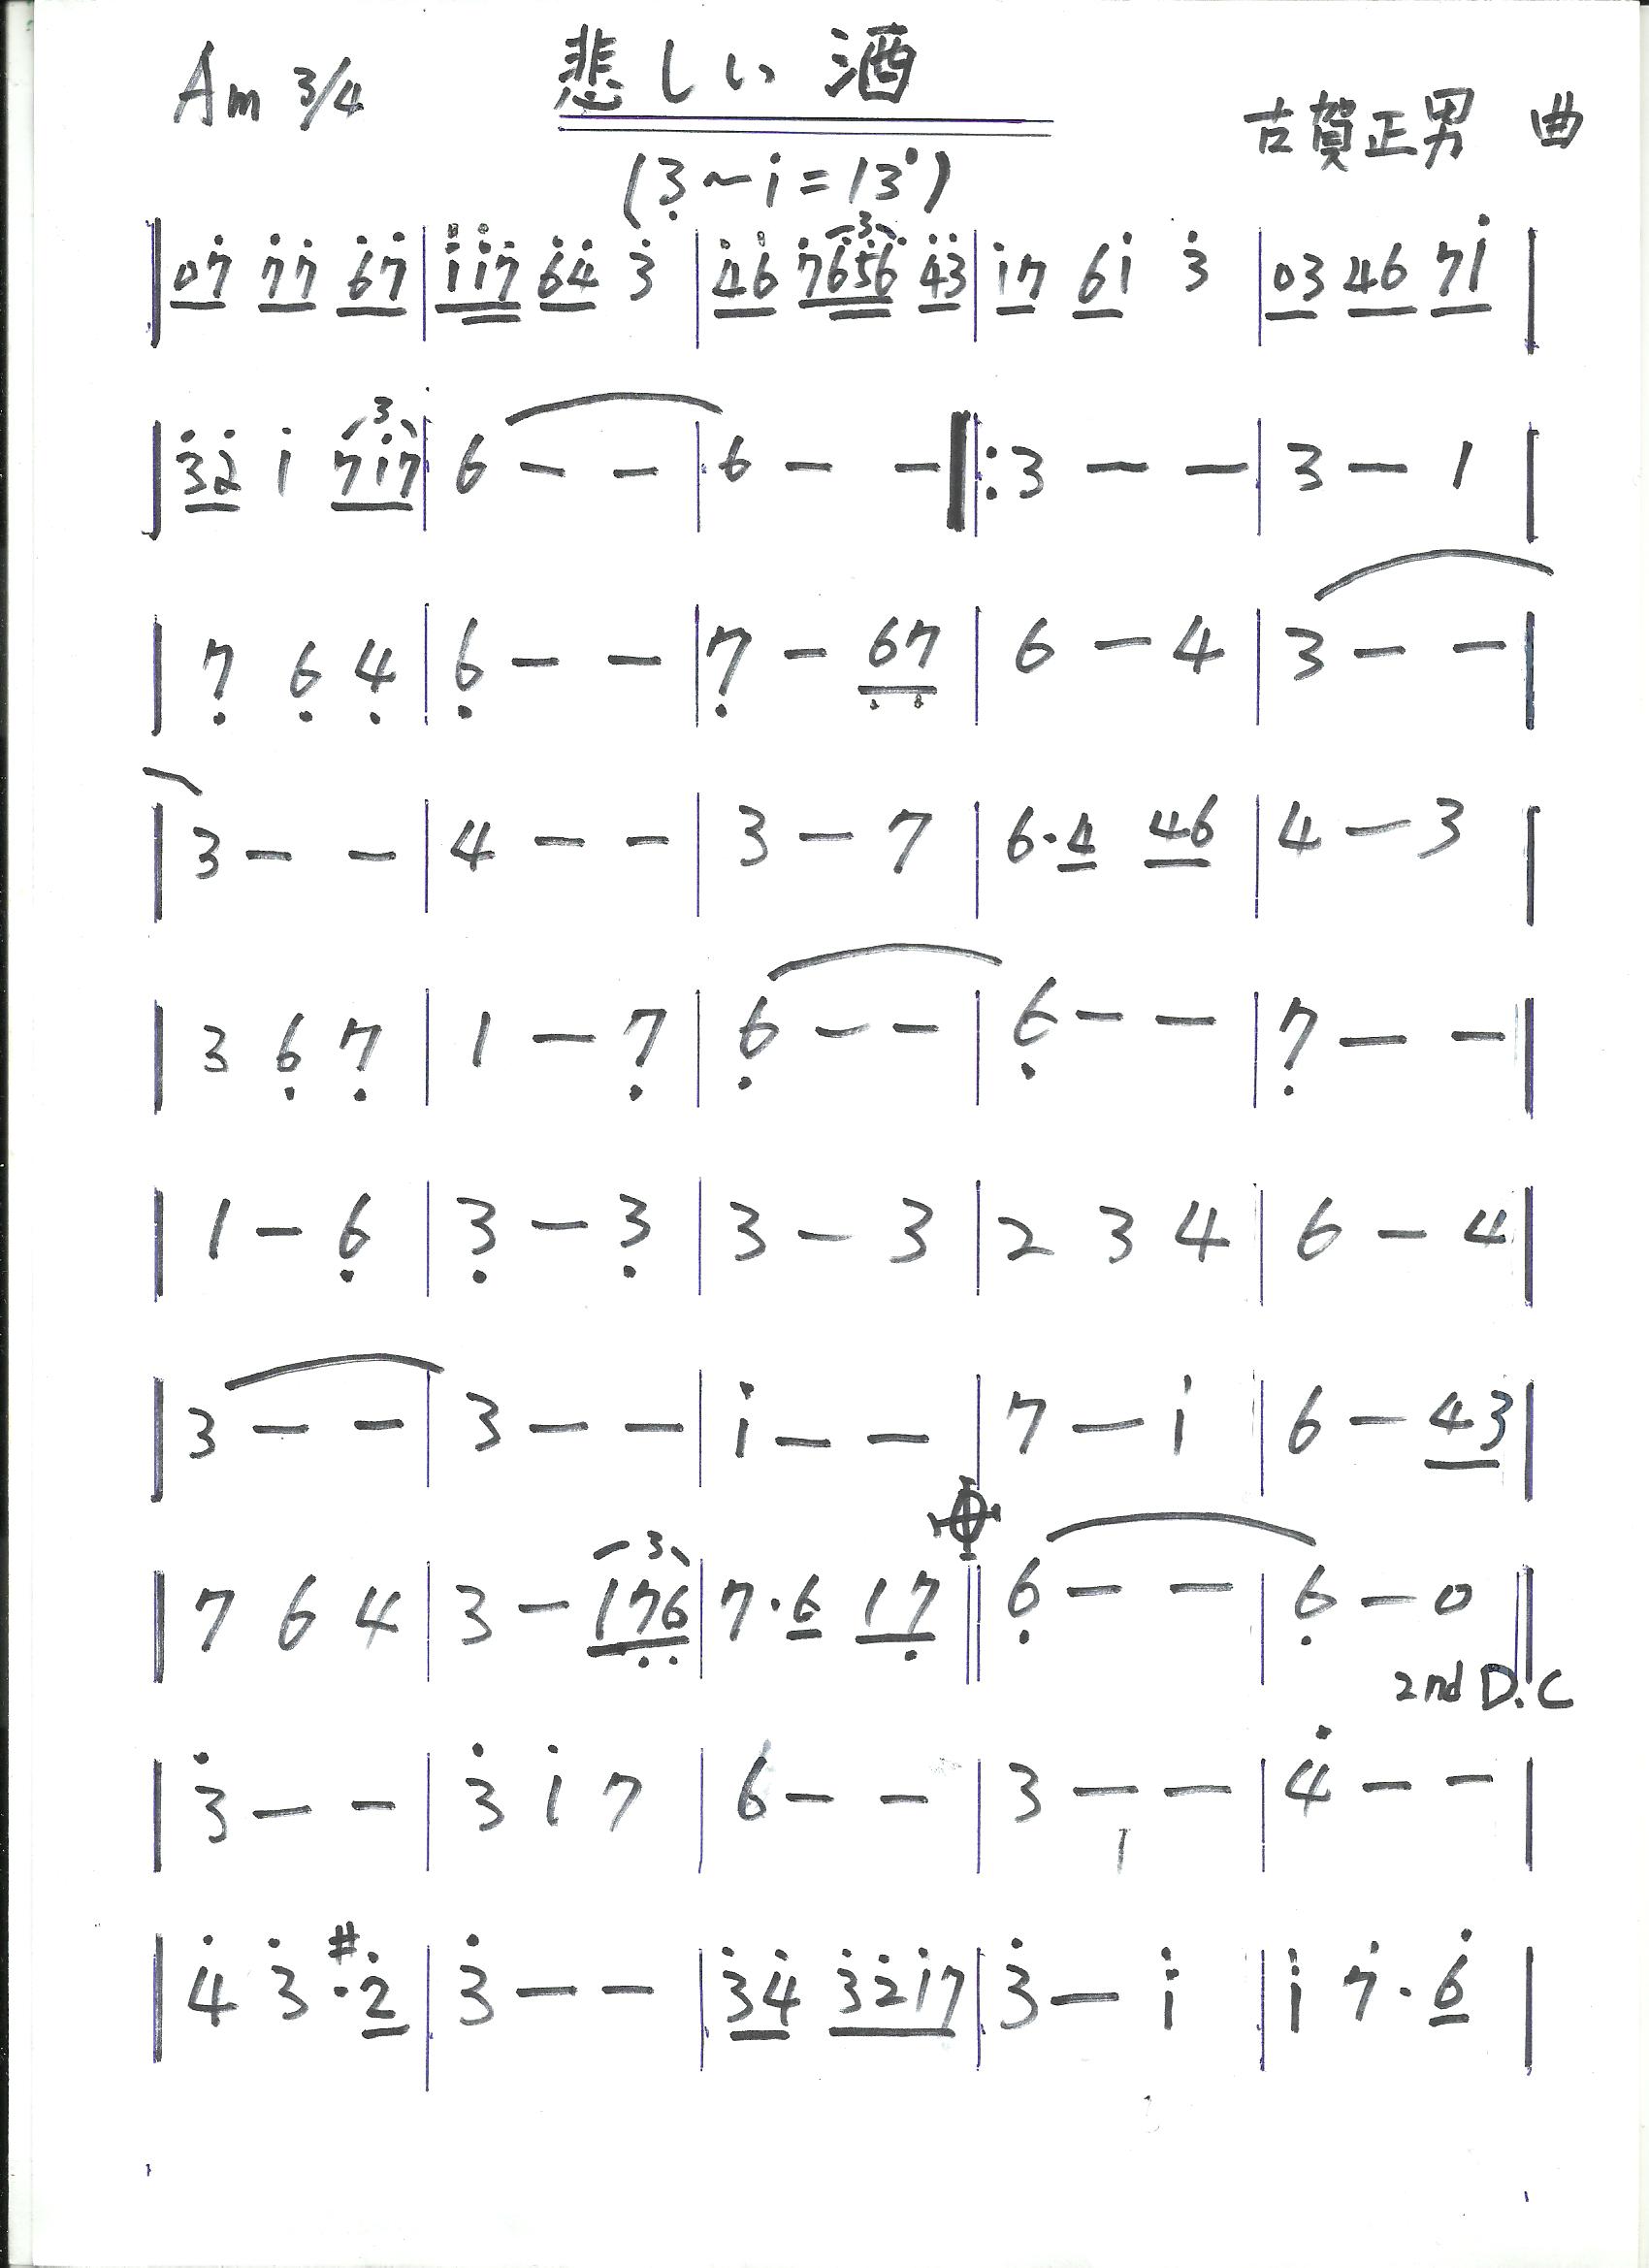 Am 3/4 悲しい酒 古賀正男 曲
(3̣~i̇=13°)
| 07̇ 7̇7̇ 6̇7̇ | i̇i̇7̇ 6̇4̇ 3̇ | 4̇6̇ 7̇6̇5̇6̇ 4̇3̇ | i̇7 6i̇ 3̇ | 03 46 7i̇ |
| 3̇2̇ i̇ 7i̇7 | 6 - - | 6 - - |: 3 - - | 3 - 1 |
| 7̣ 6̣ 4̣ | 6̣ - - | 7̣ - 6̣7̣ | 6 - 4 | 3 - - |
| 3 - - | 4 - - | 3 - 7 | 6·4 46 | 4 - 3 |
| 3 6̣ 7̣ | 1 - 7̣ | 6̣ - - | 6̣ - - | 7̣ - - |
| 1 - 6̣ | 3̣ - 3̣ | 3 - 3 | 2 3 4 | 6 - 4 |
| 3 - - | 3 - - | i̇ - - | 7 - i̇ | 6 - 43 |
| 7 6 4 | 3 - 17̣6̣ | 7·6 17̣ || 6̣ - - | 6̣ - 0 ||
2nd D.C
| 3̇ - - | 3̇ i̇ 7 | 6 - - | 3 - - | 4̇ - - |
| 4̇ 3̇ ·#2̇ | 3̇ - - | 3̇4̇ 3̇2̇i̇7 | 3̇ - i̇ | i̇ 7̇·6̇ |